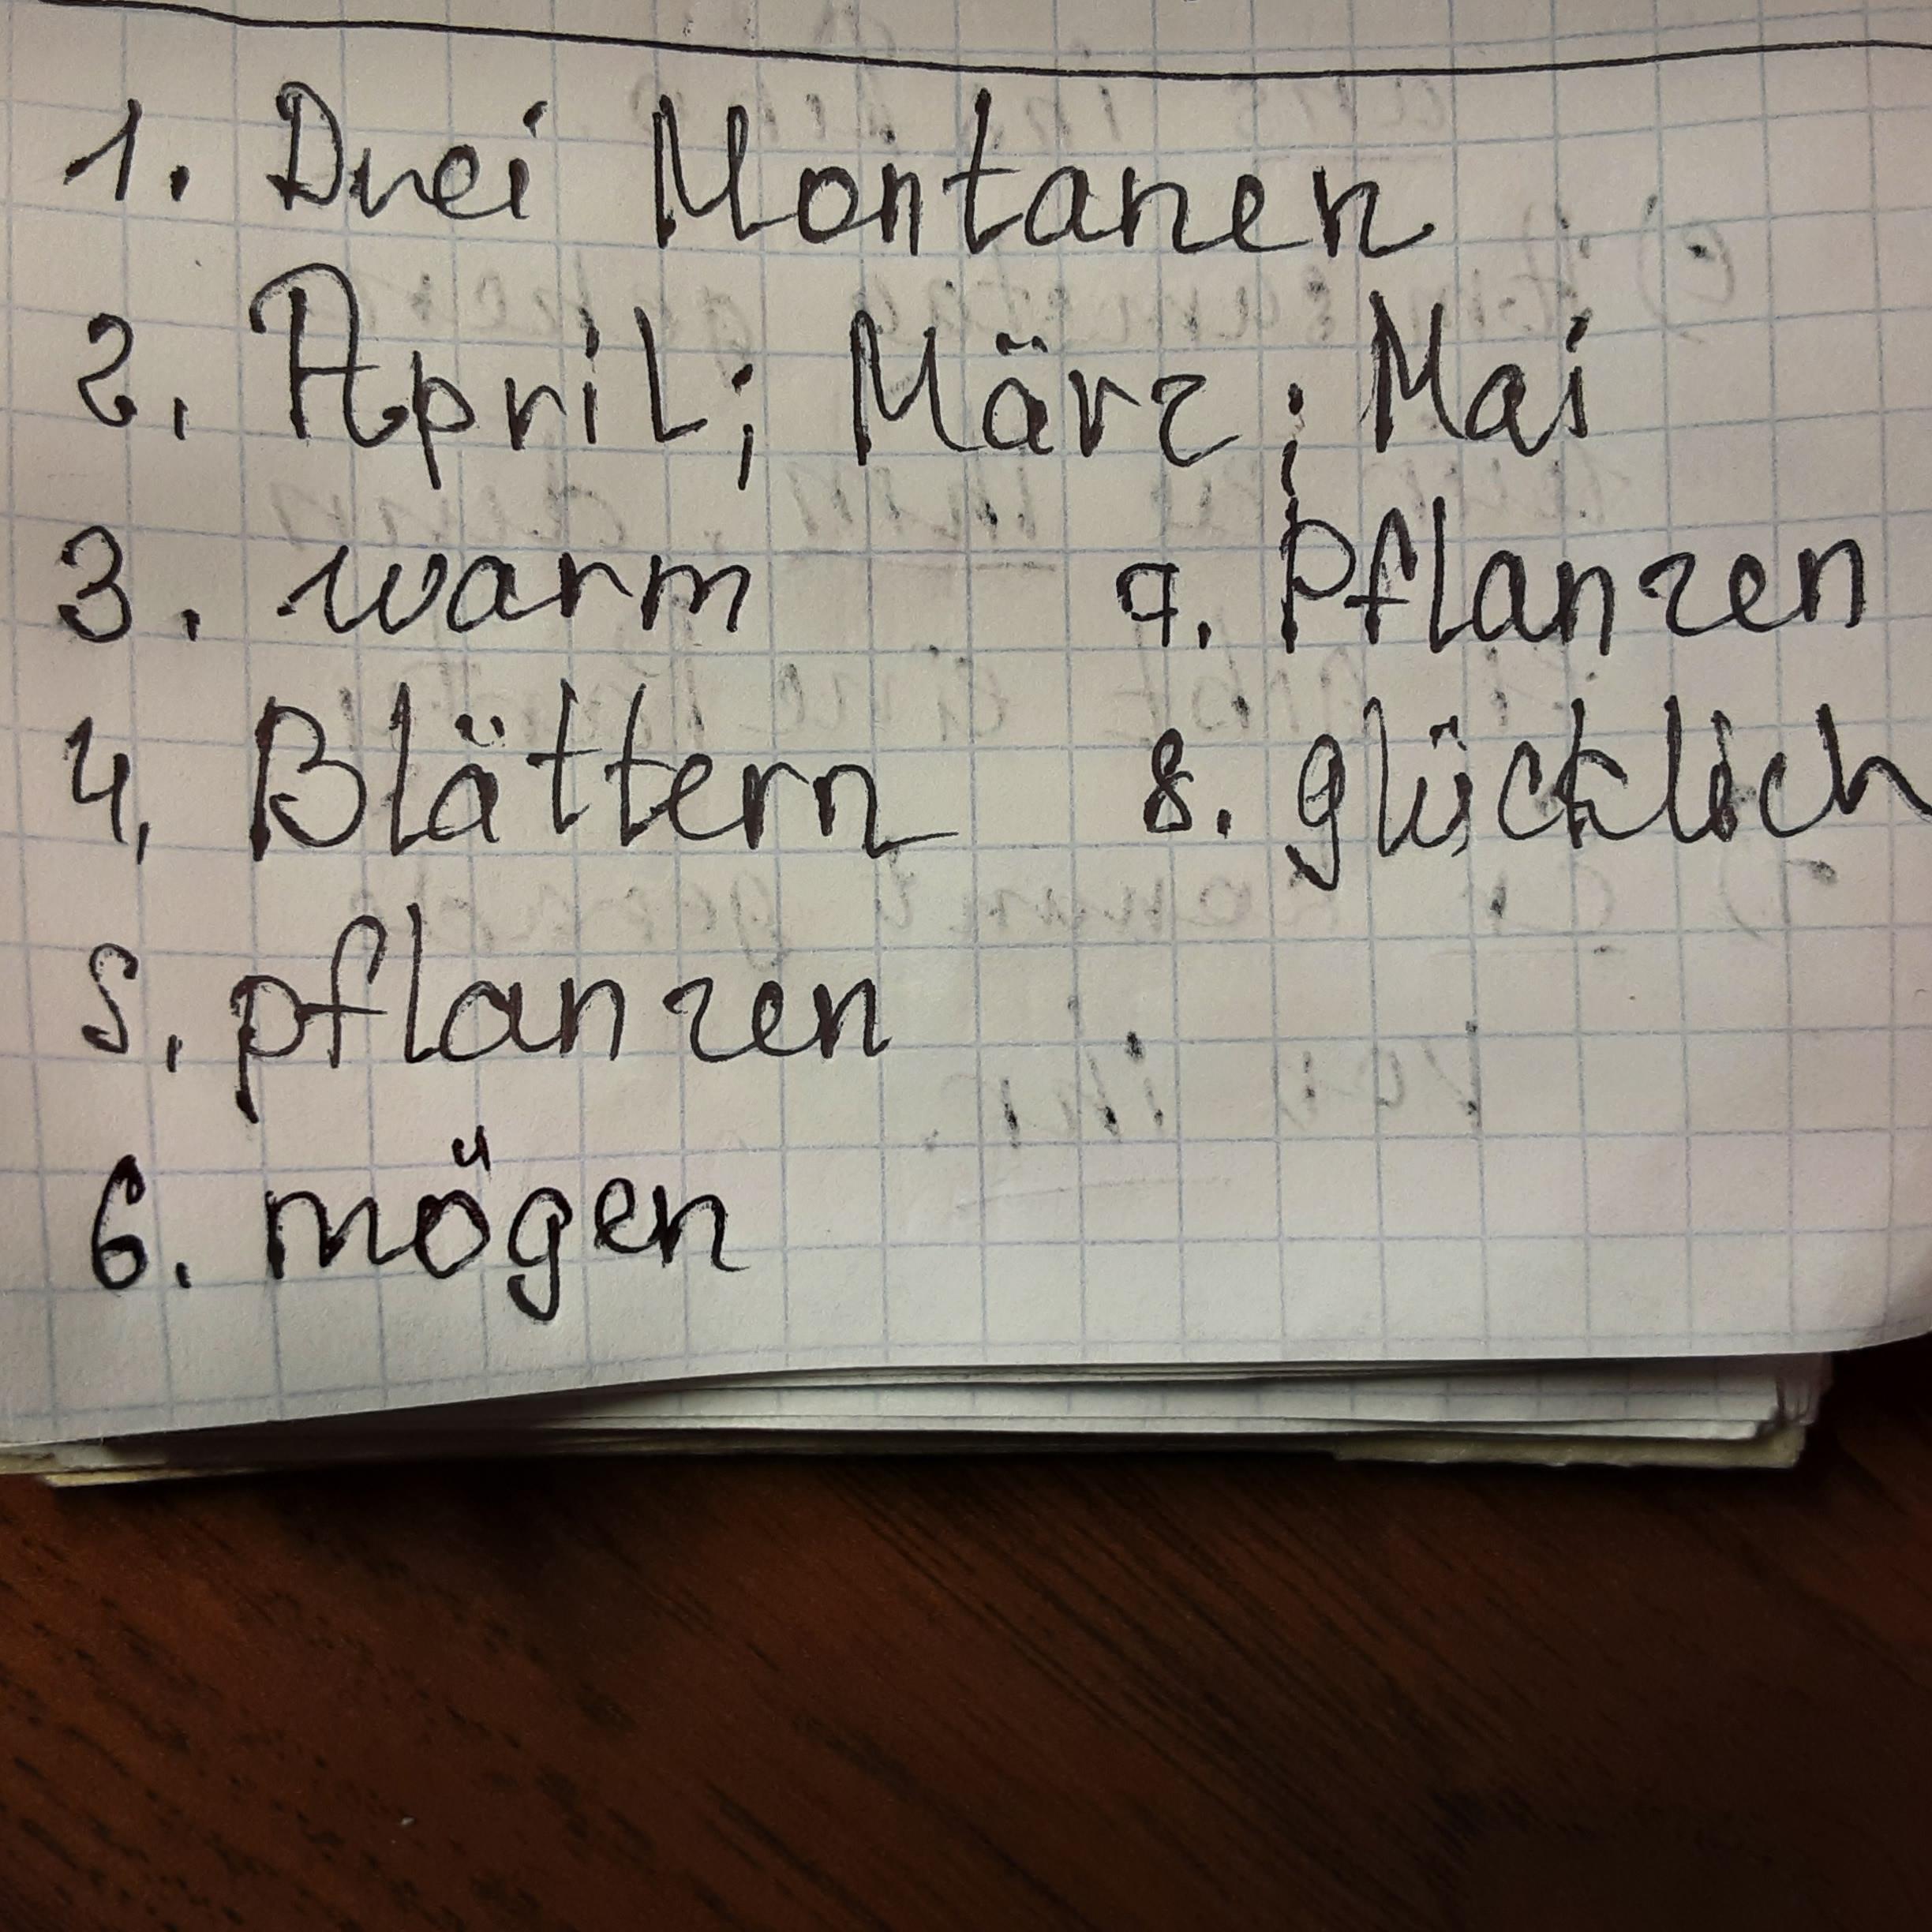 1. Drei Montanen
2. April; März; Mai
3. warm
4. Blättern
5. pflanzen
6. mögen
7. Pflanzen
8. glücklich